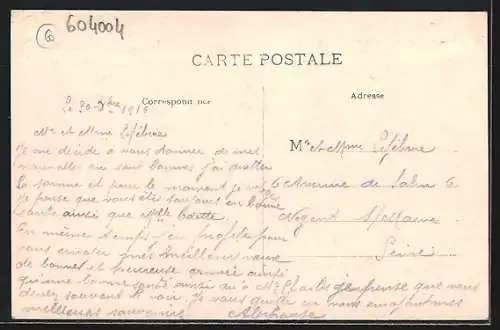 604004
CARTE POSTALE
Correspondance
Adresse
Le 30 Xbre 1916
Mr et Mme Lefebvre
Je me décide à vous donner de mes
nouvelles qui sont bonnes j'ai quitter
la somme et pour le moment je
je pense que vous êtes toujours en bonne
santé ainsi que Mlle Odette
En même temps j'en profite pour
vous envoyer mes meilleurs vœux
de bonne et heureuse année ainsi
bonne santé ainsi qu'à Mr Charles je pense que vous
devez souvent le voir. Je vous quitte en vous
meilleurs souvenirs Alphonse
Mr et Mme Lefebvre
6 Avenue de 6
Nogent S/Marne
Seine